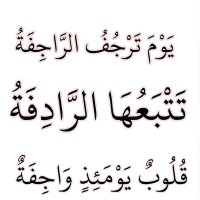 يَوْمَ تَرْجُفُ الرَّاجِفَةُ
تَتْبَعُهَا الرَّادِفَةُ
قُلُوبٌ يَوْمَئِذٍ وَاجِفَةٌ